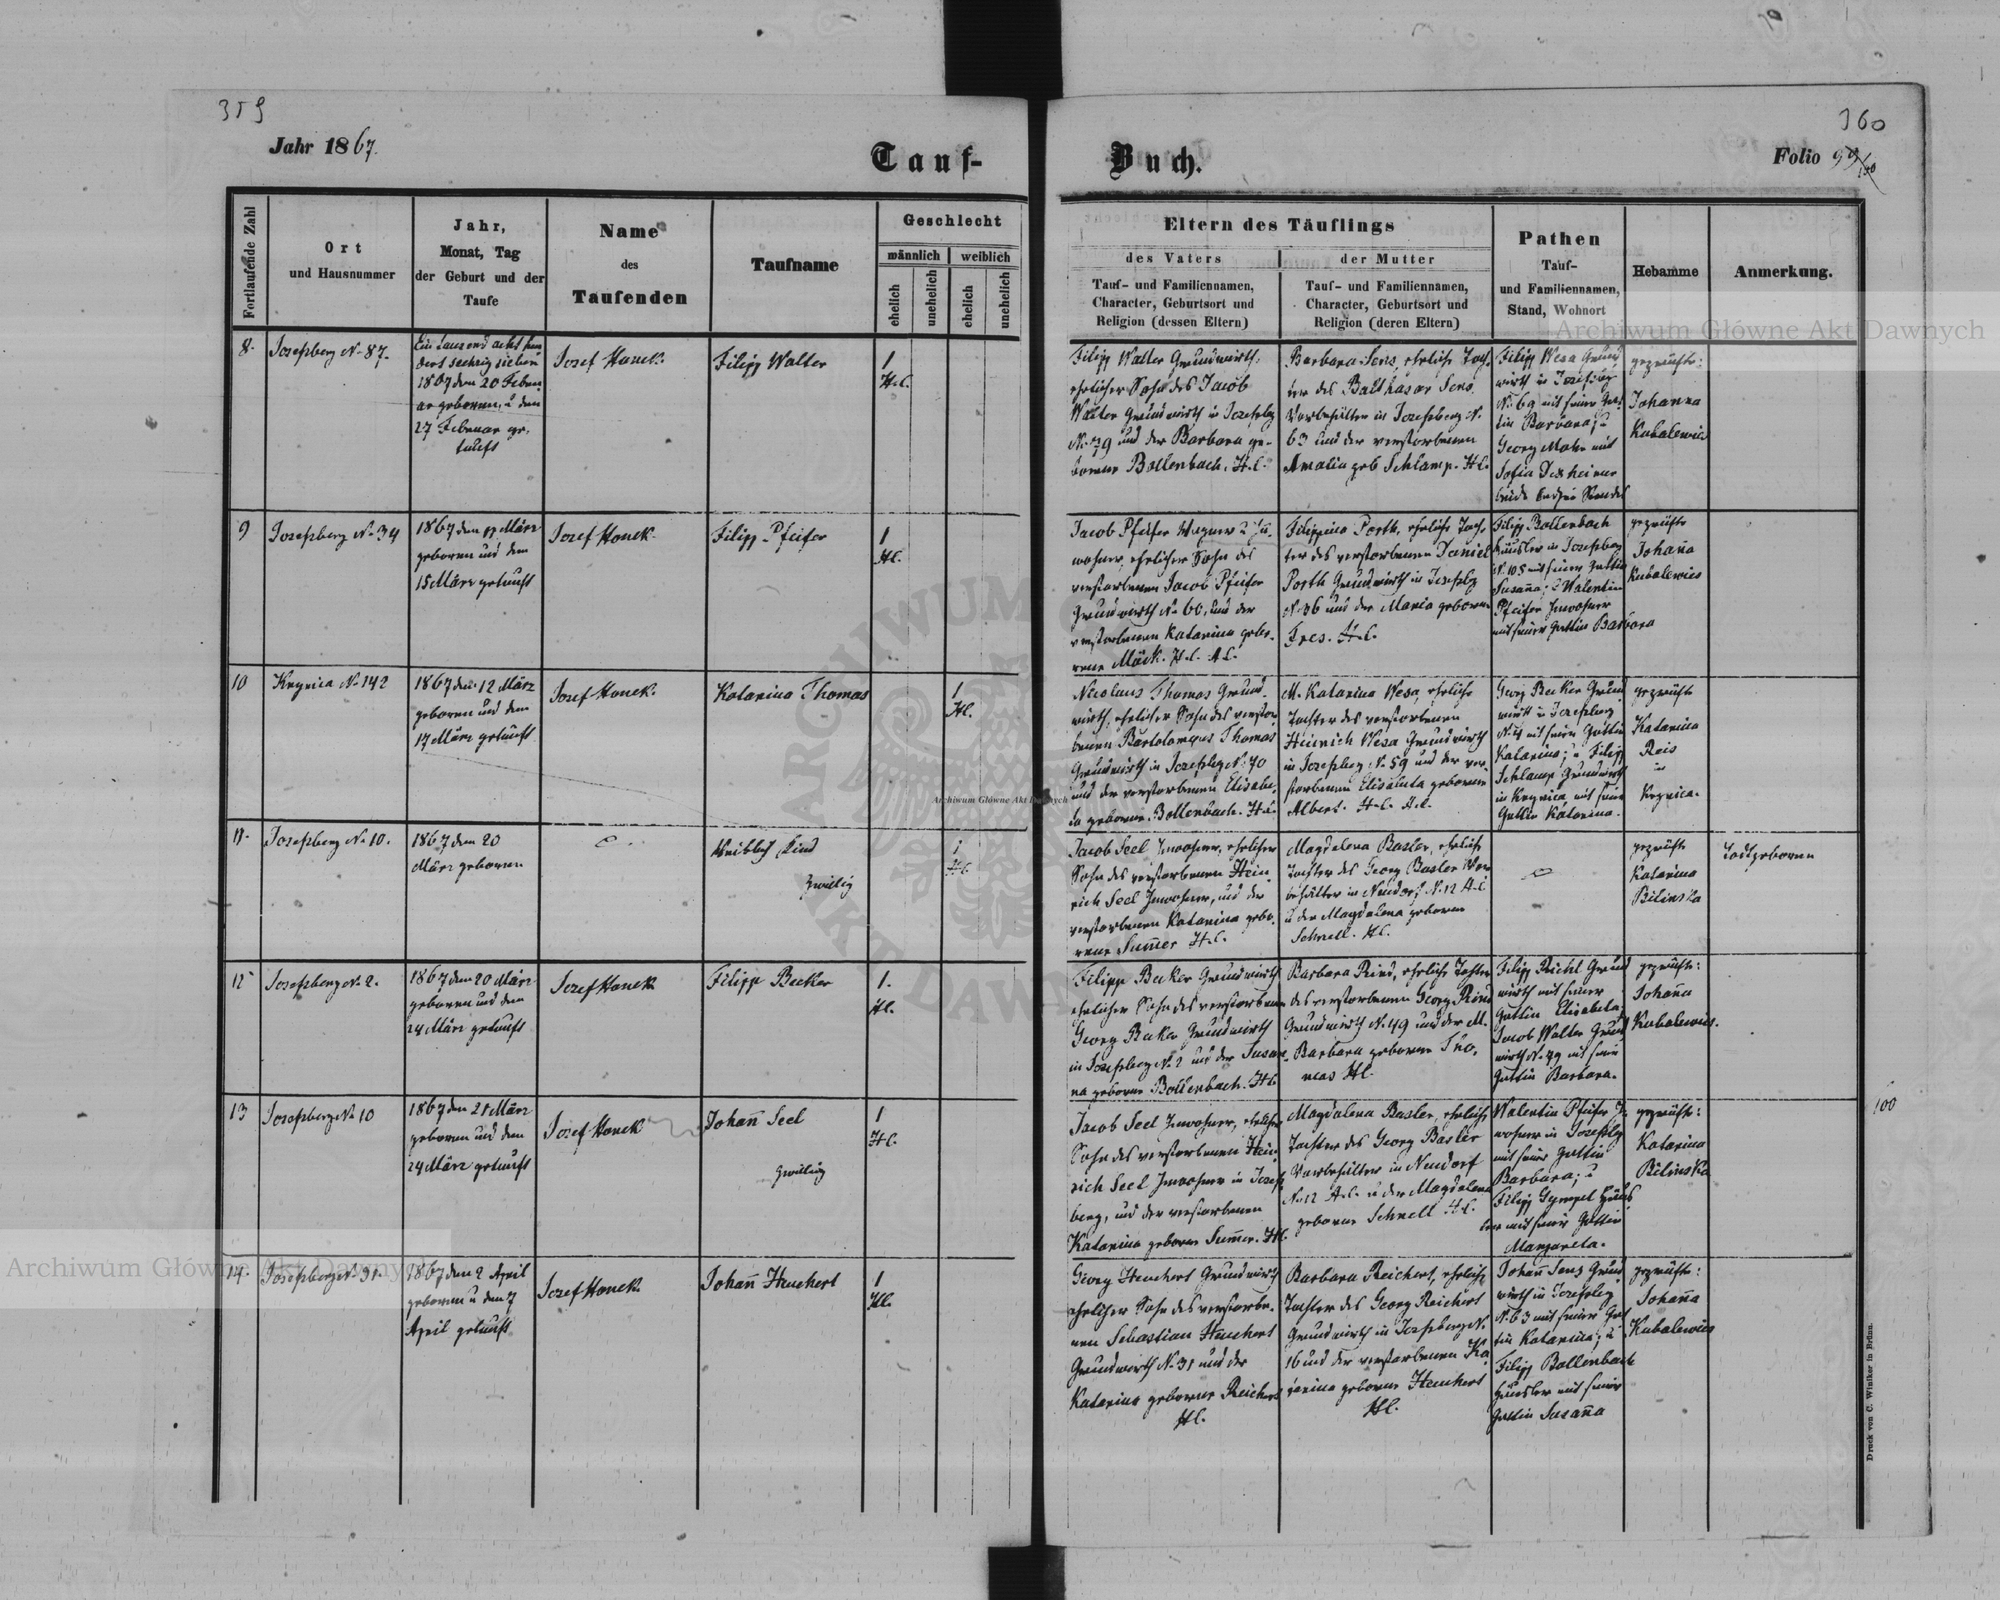 359
360
Jahr 1867.
Tauf-
Buch.
Folio 99/100
Fortlaufende Zahl
Ort
und Hausnummer
Jahr,
Monat, Tag
der Geburt und der
Taufe
Name
des
Taufenden
Taufname
Geschlecht
männlich
weiblich
ehelich
unehelich
ehelich
unehelich
Eltern des Täuflings
des Vaters
Tauf- und Familiennamen,
Character, Geburtsort und
Religion (dessen Eltern)
der Mutter
Tauf- und Familiennamen,
Character, Geburtsort und
Religion (deren Eltern)
Pathen
Tauf-
und Familiennamen,
Stand, Wohnort
Hebamme
Anmerkung.
8.
Josefsberg No 87.
Ein tausend acht hun
dert sechzig sieben
1867 den 20 Febru
ar geboren, u den
27 Februar ge-
tauft
Josef Honek.
Filipp Walter
1
H.C.
Filipp Walter Grundwirth,
ehelicher Sohn des Jacob
Walter Grundwirth in Josefsbg
No 79 und der Barbara ge-
borene Bollenbach. H.C.
Barbara Sens, eheliche Toch-
ter des Balthasar Sens
Vorbehälter in Josefsberg N.
63 und der verstorbenen
Amalia geb Schlamp. H.C.
Filipp Wesa Grund
wirth in Josefsbg
No 69 mit seiner Gat-
tin Barbara; u
Georg Mohr mit
Sofia Dexheimer
beide ledigen Standes
geprüfte:
Johanna
Kubalewicz
9
Josefsberg No 34
1867 den 17 März
geboren und den
18 März getauft
Josef Honek.
Filipp Pfeifer
1
H.C.
Jacob Pfeifer Wagner u In-
wohner, ehelicher Sohn des
verstorbenen Jacob Pfeifer
Grundwirth No 66, und der
verstorbenen Katarina gebo-
rene Mäck. H.C. A.C.
Filippina Porth, eheliche Toch-
ter des verstorbenen Daniel
Porth Grundwirth in Josefsbg
N. 36 und der Maria geborene
Fres. H.C.
Filipp Bollenbach
Häusler in Josefsberg
N. 105 mit seiner Gattin
Susanna; u Walentin
Pfeifer Inwohner
mit seiner Gattin Barbara
geprüfte
Johanna
Kubalewicz
10
Krynica No 142
1867 den 12 März
geboren und den
17 März getauft
Josef Honek.
Katarina Thomas
1
H.C.
Nicolaus Thomas Grund-
wirth, ehelicher Sohn des verstor-
benen Bartolomeus Thomas
Grundwirth in Josefsbg N. 70
und der verstorbenen Elisabe-
ta geborene Bollenbach. H.C.
M. Katarina Wesa, eheliche
Tochter des verstorbenen
Heinrich Wesa Grundwirth
in Josefsberg N. 59 und der ver-
storbenen Elisabeta geborene
Albert. H.C. A.C.
Georg Becker Grund
wirth in Josefsberg
N. 4 mit seiner Gattin
Katarina; u Filipp
Schlamp Grundwirth
in Krynica mit seiner
Gattin Katarina.
geprüfte
Katarina
Reis
in
Krynica.
11.
Josefsberg No 10.
1867 den 20
März geboren
Weibliches Kind
Zwillig
1
H.C.
Jacob Seel Inwohner, ehelicher
Sohn des verstorbenen Hein-
rich Seel Inwohner, und der
verstorbenen Katarina gebo-
rene Summer H.C.
Magdalena Basler, eheliche
Tochter des Georg Basler Vor-
behälter in Neudorf N. 12 A.C.
u der Magdalena geborene
Schnell. H.C.
geprüfte
Katarina
Bilinska
Todtgeboren
12
Josefsberg No 2.
1867 den 20 März
geboren und den
24 März getauft
Josef Honek
Filipp Becker
1.
H.C.
Filipp Becker Grundwirth
ehelicher Sohn des verstorbenen
Georg Becker Grundwirth
in Josefsberg No 2 und der Susan-
na geborene Bollenbach. H.C.
Barbara Rind, eheliche Tochter
des verstorbenen Georg Rind
Grundwirth N. 49 und der M.
Barbara geborene Tho-
mas H.C.
Filipp Reichl Grund
wirth mit seiner
Gattin Elisabeta;
Jacob Walter Grund
wirth N. 79 mit seiner
Gattin Barbara.
geprüfte:
Johanna
Kubalewicz.
13
Josefsberg No 10
1867 den 21 März
geboren und den
24 März getauft
Josef Honek
Johann Seel
Zwillig
1
H.C.
Jacob Seel Inwohner, ehelicher
Sohn des verstorbenen Hein-
rich Seel Inwohner in Josefs-
berg, und der verstorbenen
Katarina geborne Summer. H.C.
Magdalena Basler, eheliche
Tochter des Georg Basler
Vorbehälter in Neudorf
No 12 A.C. u der Magdalena
geborene Schnell H.C.
Walentin Pfeifer In-
wohner in Josefsbg
mit seiner Gattin
Barbara; u
Filipp Gympel Häus-
ler mit seiner Gattin
Margareta.
geprüfte:
Katarina
Bilinska
100
14.
Josefsberg No 31.
1867 den 2 April
geboren u den 7
April getauft
Josef Honek.
Johann Heuchert
1
H.C.
Georg Heuchert Grundwirth
ehelicher Sohn des verstorbe-
nen Sebastian Heuchert
Grundwirth N. 31 und der
Katarina geborene Reichert
H.C.
Barbara Reichert, eheliche
Tochter des Georg Reichert
Grundwirth in Josefsberg N.
16 und der verstorbenen Ka
tarina geborene Heuchert
H.C.
Johann Sens Grund
wirth in Josefsbg
N. 63 mit seiner Gat
tin Katarina; u
Filipp Bollenbach
Häusler mit seiner
Gattin Susanna
geprüfte:
Johanna
Kubalewicz
Druck von C. Winiker in Brünn.
Archiwum Główne Akt Dawnych
Archiwum Główne Akt Dawnych
Archiwum Główne Akt Dawnych
ARCHIWUM
AKT DAWN